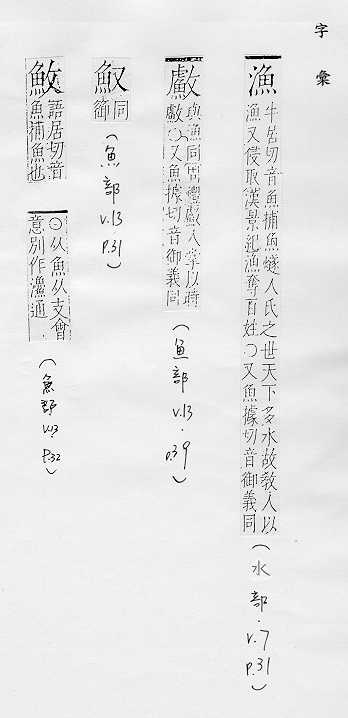 字彙
漁
牛居切音魚捕魚燧人氏之世天下多水故教人以
漁又侵取漢景起漁奪百姓○又魚據切音御義同
(水部.V.7 P.31)
䱷
與漁同周禮䱷人掌以時
䱷○又魚據切音御義同
(鱼部 V.13. P.39)
䰻
同
御
(魚部 V.13 P.31)
𩵎
語居切音
魚捕魚也
○从魚从支會
意別作漁通
(魚部 V.13. P.32)